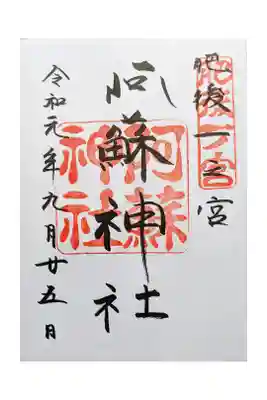 肥後一之宮
阿蘇神社
令和元年九月廿五日
肥後一宮
阿蘇
神社